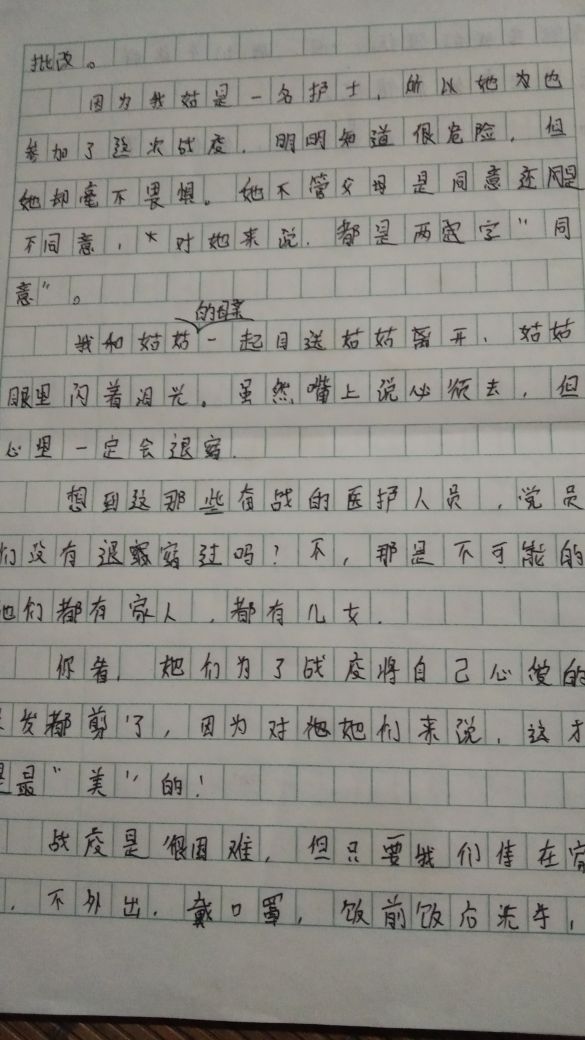 批改。
因为我姑是一名护士，所以她为也
参加了这次战疫，明明知道很危险，但
她却毫不畏惧。她不管父母是同意还是
不同意，对她来说，都是两个字"同
意"。
的母亲
我和姑姑一起目送姑姑离开，姑姑
眼里闪着泪光。虽然嘴上说必须去，但
心里一定会退缩.
想到这那些奋战的医护人员，党员
们没有退缩过吗？不，那是不可能的
他们都有家人，都有儿女.
你看，她们为了战疫将自己心爱的
发都剪了，因为对她们来说，这才
是最"美"的！
战疫是很困难，但只要我们待在家
，不外出，戴口罩，饭前饭后洗手，